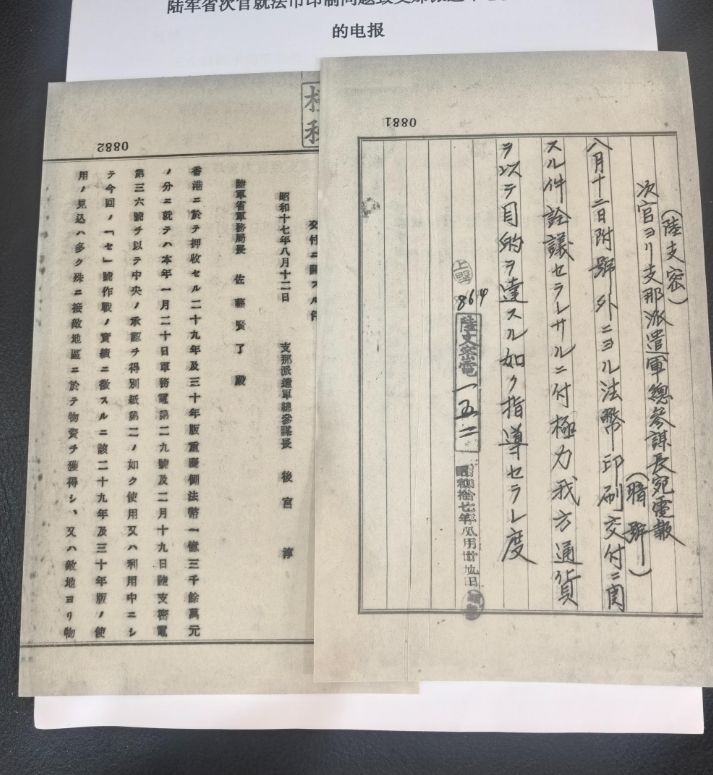 陆军省次官就法币印制问题致支那派遣
的电报
0881
(陸支密)
次官ヨリ支那派遣軍總參謀長宛電報
(暗號)
八月十二日附號外ニヨル法幣印刷交付ニ関
スル件詮議セラレサルニ付極力我方通貨
ヲ以テ目的ヲ達スル如ク指導セラレ度
陸支密電 一五二
0882
交付ニ關スル件
昭和十七年八月十二日 支那派遣軍總參謀長 後宮 淳
陸軍省軍務局長 佐藤賢了殿
香港ニ於テ押收セル二十九年及三十年版重慶側法幣一億三千餘萬元
ノ分ニ就テハ本年一月二十日軍務電第二九號及二月十九日陸支密電
第三六號ヲ以テ中央ノ承認ヲ得別紙第二ノ如ク使用又ハ利用中ニシ
テ今回ノ「セ」號作戰ノ實績ニ徵スルニ該二十九年及三十年版ノ使
用ノ見込ハ多ク殊ニ接敵地區ニ於テ物資ヲ獲得シ、又ハ敵地ヨリ物